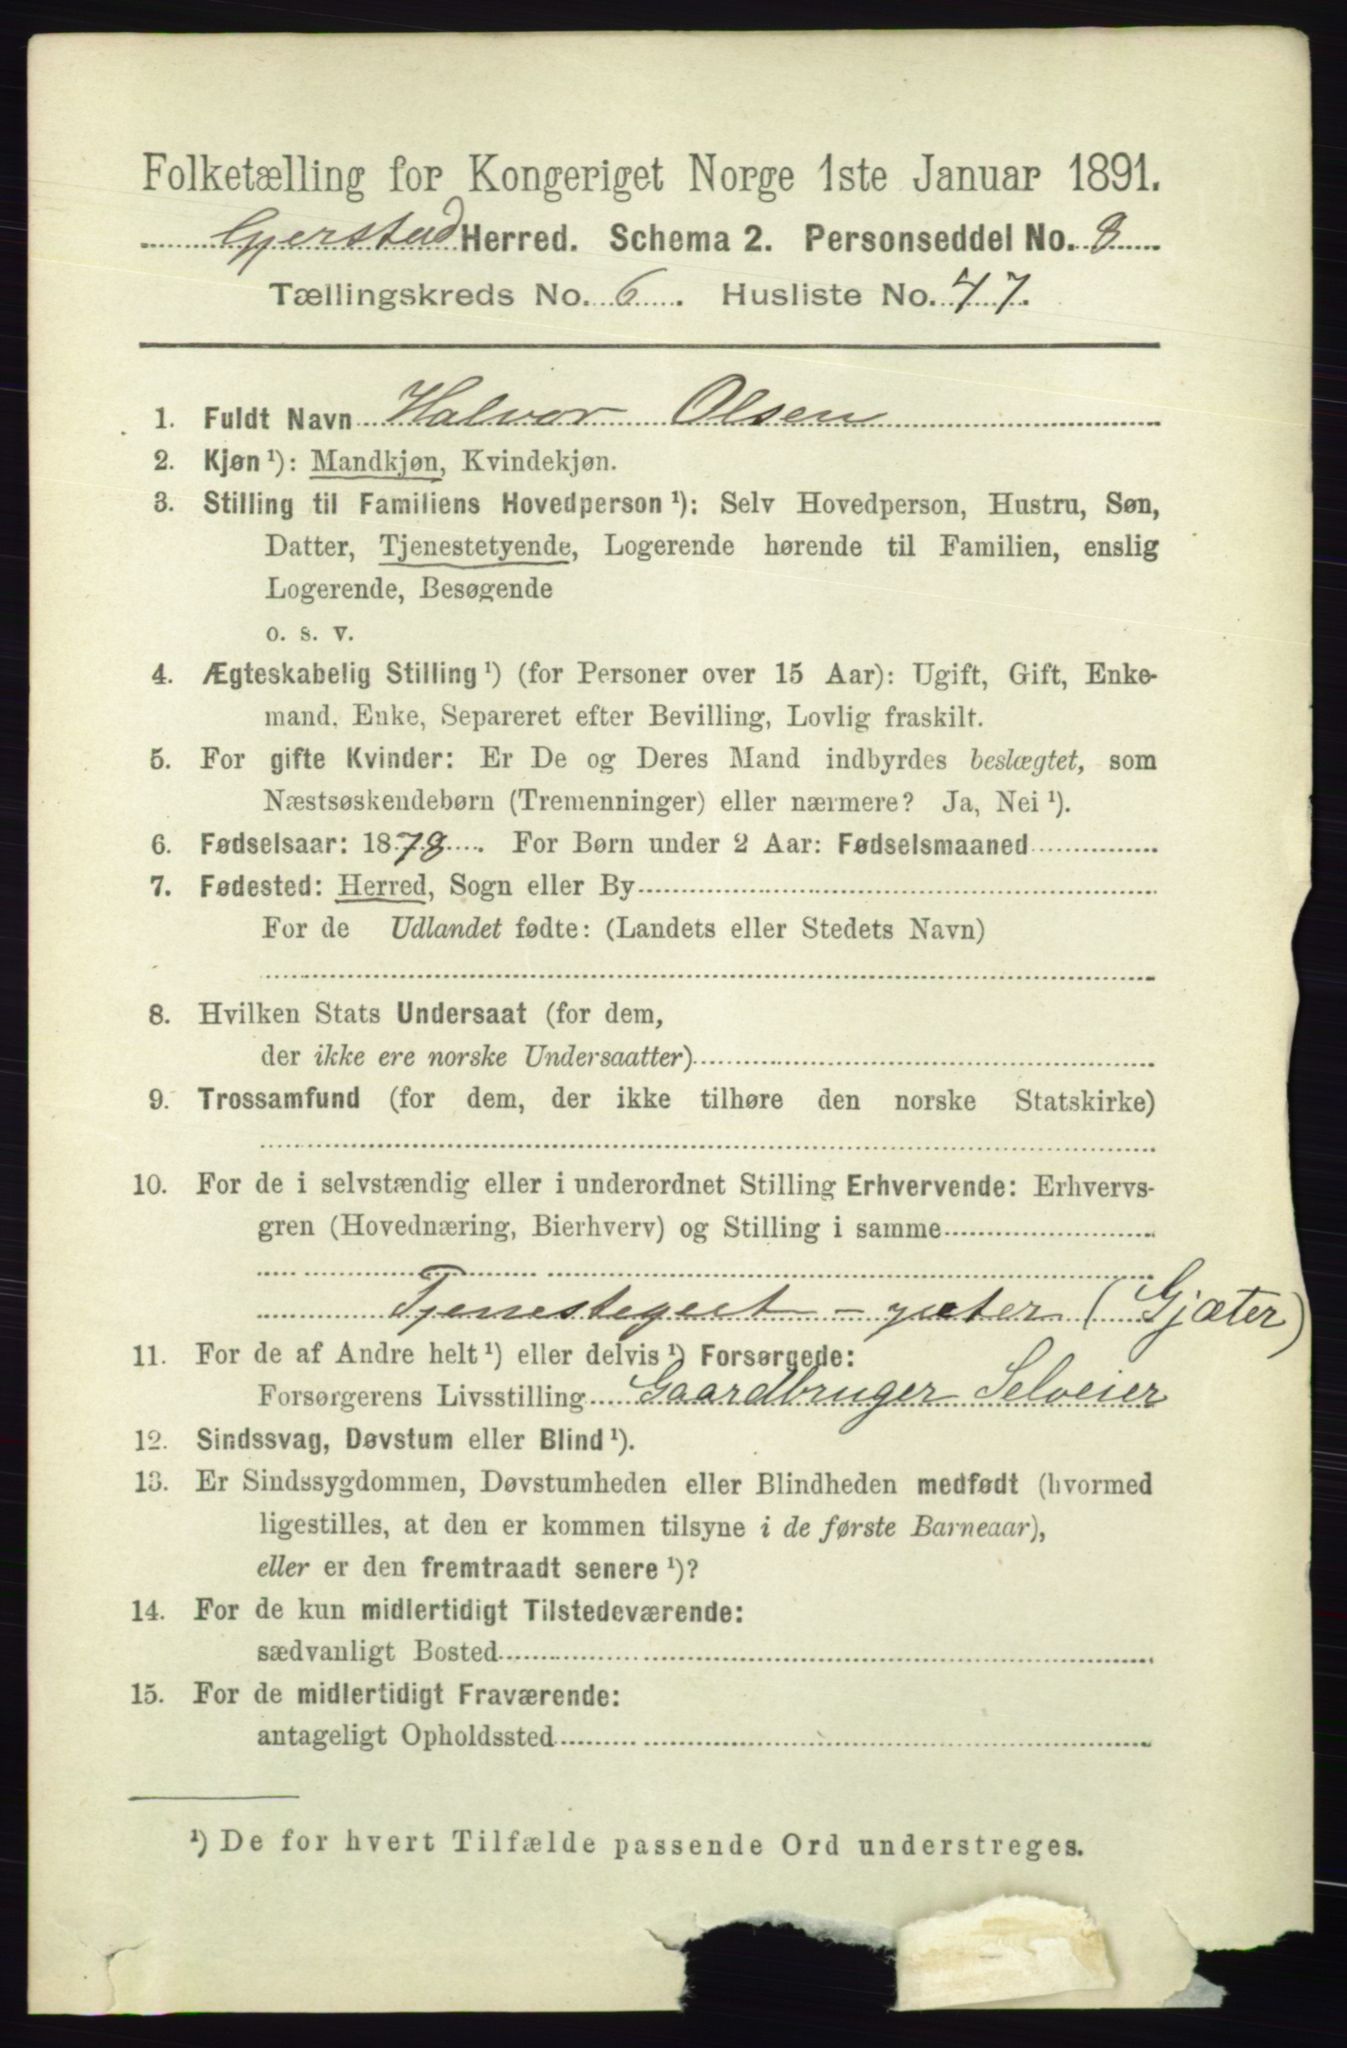 Folketælling for Kongeriget Norge 1ste Januar 1891.
Gjerstad Herred. Schema 2. Personseddel No. 8
Tællingskreds No. 6. Husliste No. 47.
1. Fuldt Navn Halvor Olsen
2. Kjøn¹): Mandkjøn, Kvindekjøn.
3. Stilling til Familiens Hovedperson¹): Selv Hovedperson, Hustru, Søn,
Datter, Tjenestetyende, Logerende hørende til Familien, enslig
Logerende, Besøgende
o. s. v.
4. Ægteskabelig Stilling¹) (for Personer over 15 Aar): Ugift, Gift, Enke-
mand, Enke, Separeret efter Bevilling, Lovlig fraskilt.
5. For gifte Kvinder: Er De og Deres Mand indbyrdes beslægtet, som
Næstsøskendebørn (Tremenninger) eller nærmere? Ja, Nei¹).
6. Fødselsaar: 1878. For Børn under 2 Aar: Fødselsmaaned
7. Fødested: Herred, Sogn eller By
For de Udlandet fødte: (Landets eller Stedets Navn)
8. Hvilken Stats Undersaat (for dem,
der ikke ere norske Undersaatter)
9. Trossamfund (for dem, der ikke tilhøre den norske Statskirke)
10. For de i selvstændig eller i underordnet Stilling Erhvervende: Erhvervs-
gren (Hovednæring, Bierhverv) og Stilling i samme
Tjenestegut - gjæter (Gjæter)
11. For de af Andre helt¹) eller delvis¹) Forsørgede:
Forsørgerens Livsstilling Gaardbruger Selveier
12. Sindssvag, Døvstum eller Blind¹).
13. Er Sindssygdommen, Døvstumheden eller Blindheden medfødt (hvormed
ligestilles, at den er kommen tilsyne i de første Barneaar),
eller er den fremtraadt senere¹)?
14. For de kun midlertidigt Tilstedeværende:
sædvanligt Bosted
15. For de midlertidigt Fraværende:
antageligt Opholdssted
¹) De for hvert Tilfælde passende Ord understreges.